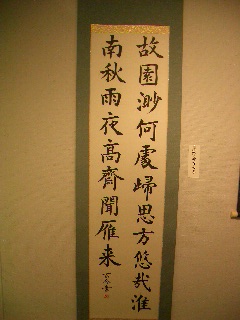 故園渺何處歸思方悠哉淮
南秋雨夜高齋聞雁来